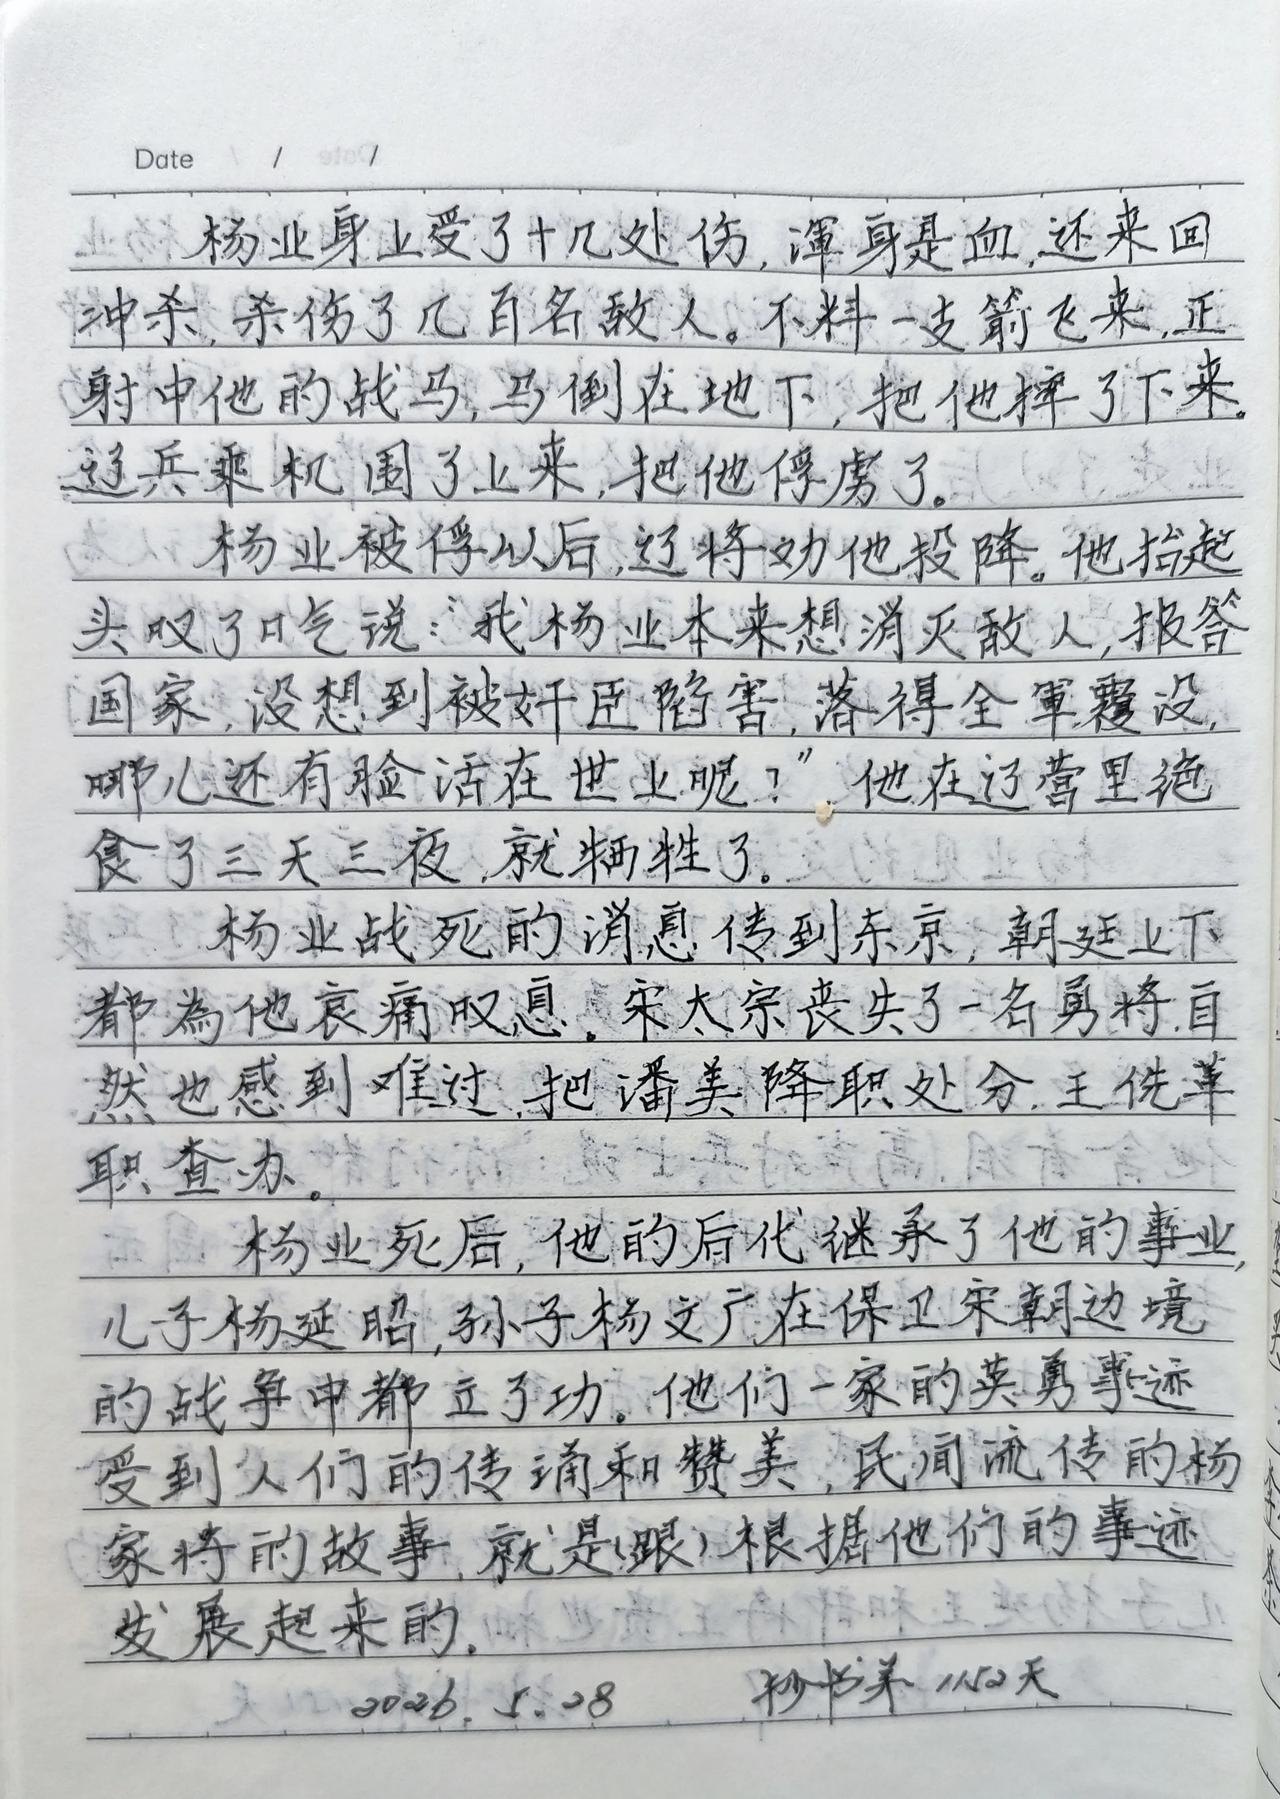 Date / /
杨业身上受了十几处伤，渾身是血，还来回
冲杀，杀伤了几百名敌人。不料一支箭飞来，正
射中他的战马，马倒在地下，把他摔了下来。
辽兵乘机围了上来，把他俘虏了。
杨业被俘以后，辽将劝他投降。他抬起
头叹了口气说：“我杨业本来想消灭敌人，报答
国家，没想到被奸臣陷害，落得全軍覆没，
哪儿还有脸活在世上呢？”他在辽营里绝
食了三天三夜，就牺牲了。
杨业战死的消息传到东京，朝廷上下
都為他哀痛叹息。宋太宗丧失了一名勇将，自
然也感到难过，把潘美降职处分，王侁革
职查办。
杨业死后，他的后代继承了他的事业，
儿子杨延昭，孙子杨文广在保卫宋朝边境
的战争中都立了功。他们一家的英勇事迹
受到人们的传诵和赞美，民间流传的杨
家将的故事，就是（跟）根据他们的事迹
发展起来的。
2026.5.28 抄书第1152天